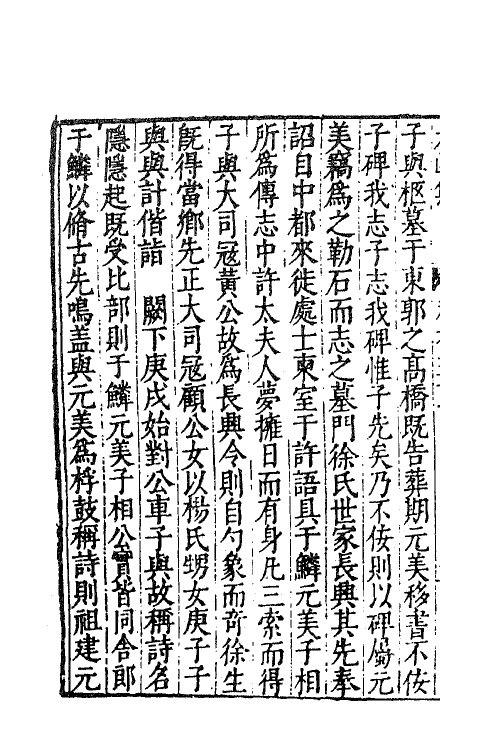 子與柩墓于東郭之髙橋既告葬期元美移書不佞
子碑我志子志我碑惟子先矣乃不佞則以碑屬元
美竊爲之勒石而志之墓門徐氏世家長興其先奉
詔自中都來徙處士東室于許語具于鱗元美子相
所爲傳志中許太夫人夢擁日而有身凡三索而得
子與大司冦黄公故爲長興令則自勺象而竒徐生
旣得當鄉先正大司冦顧公女以楊氏甥女庚子子
與與計偕詣 闕下庚戌始對公車子與故稱詩名
隱隱起既受比部則于鱗元美子相公實皆同舍郎
于鱗以脩古先鳴盖與元美爲桴鼓稱詩則祖建元